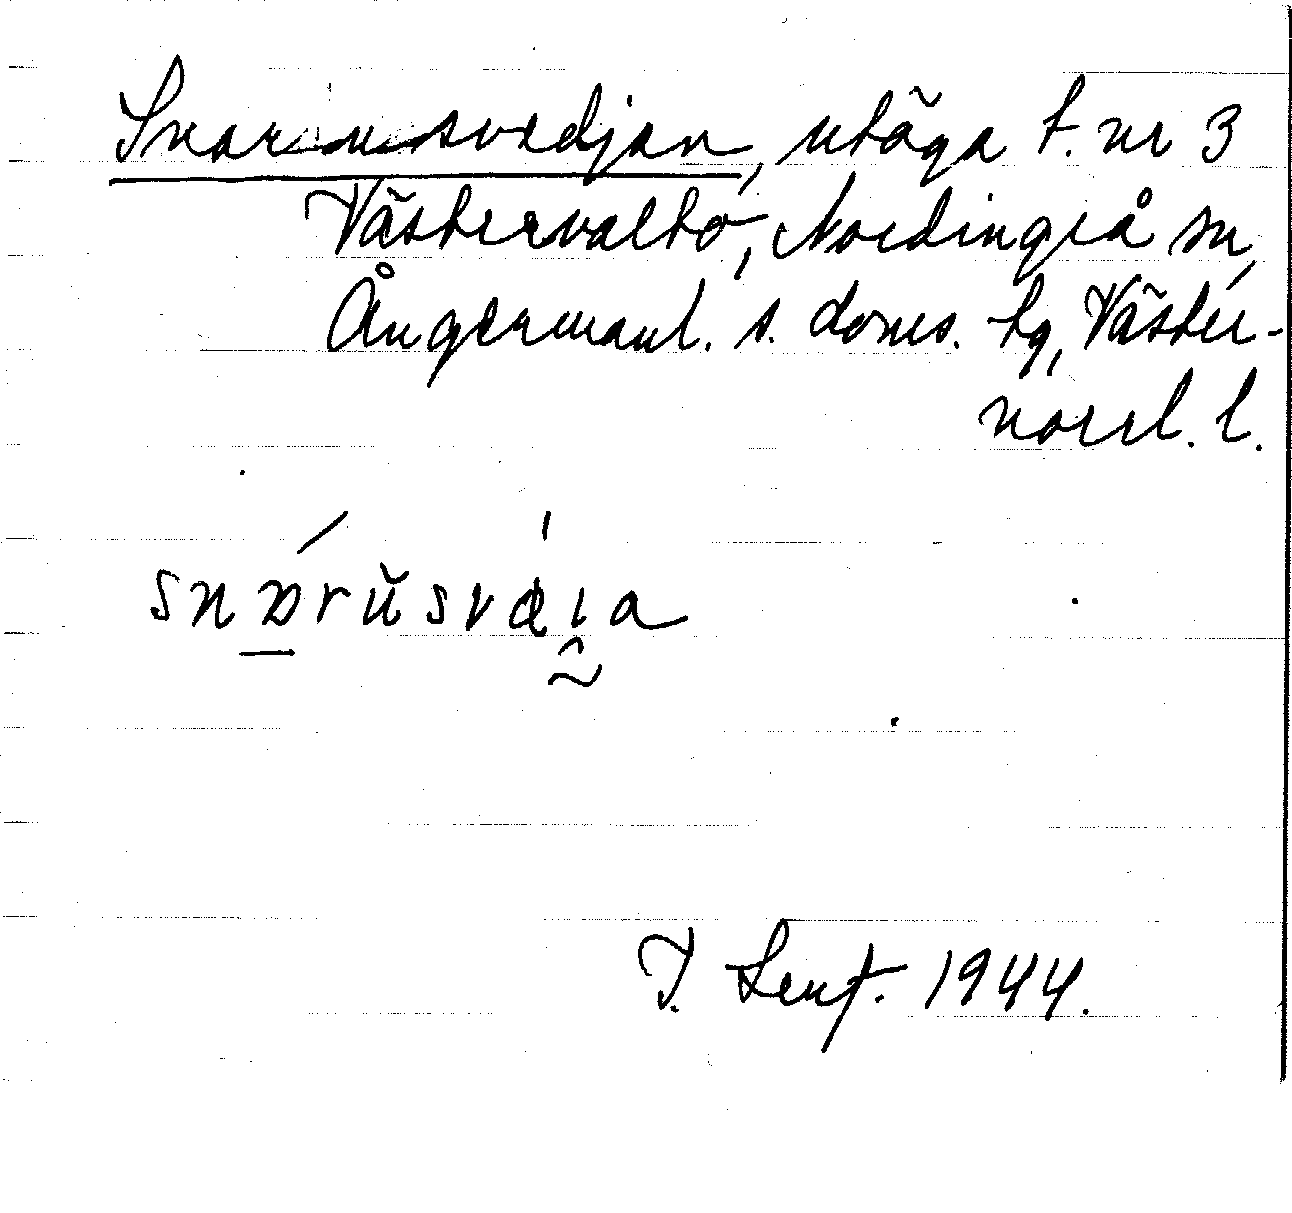 Snarensvedjan, utäga t. nr 3
Västervalto, Nordingrå sn,
Ångermanl. s. doms. tg, Väster-
norrl. l.
T. Lenf. 1944.